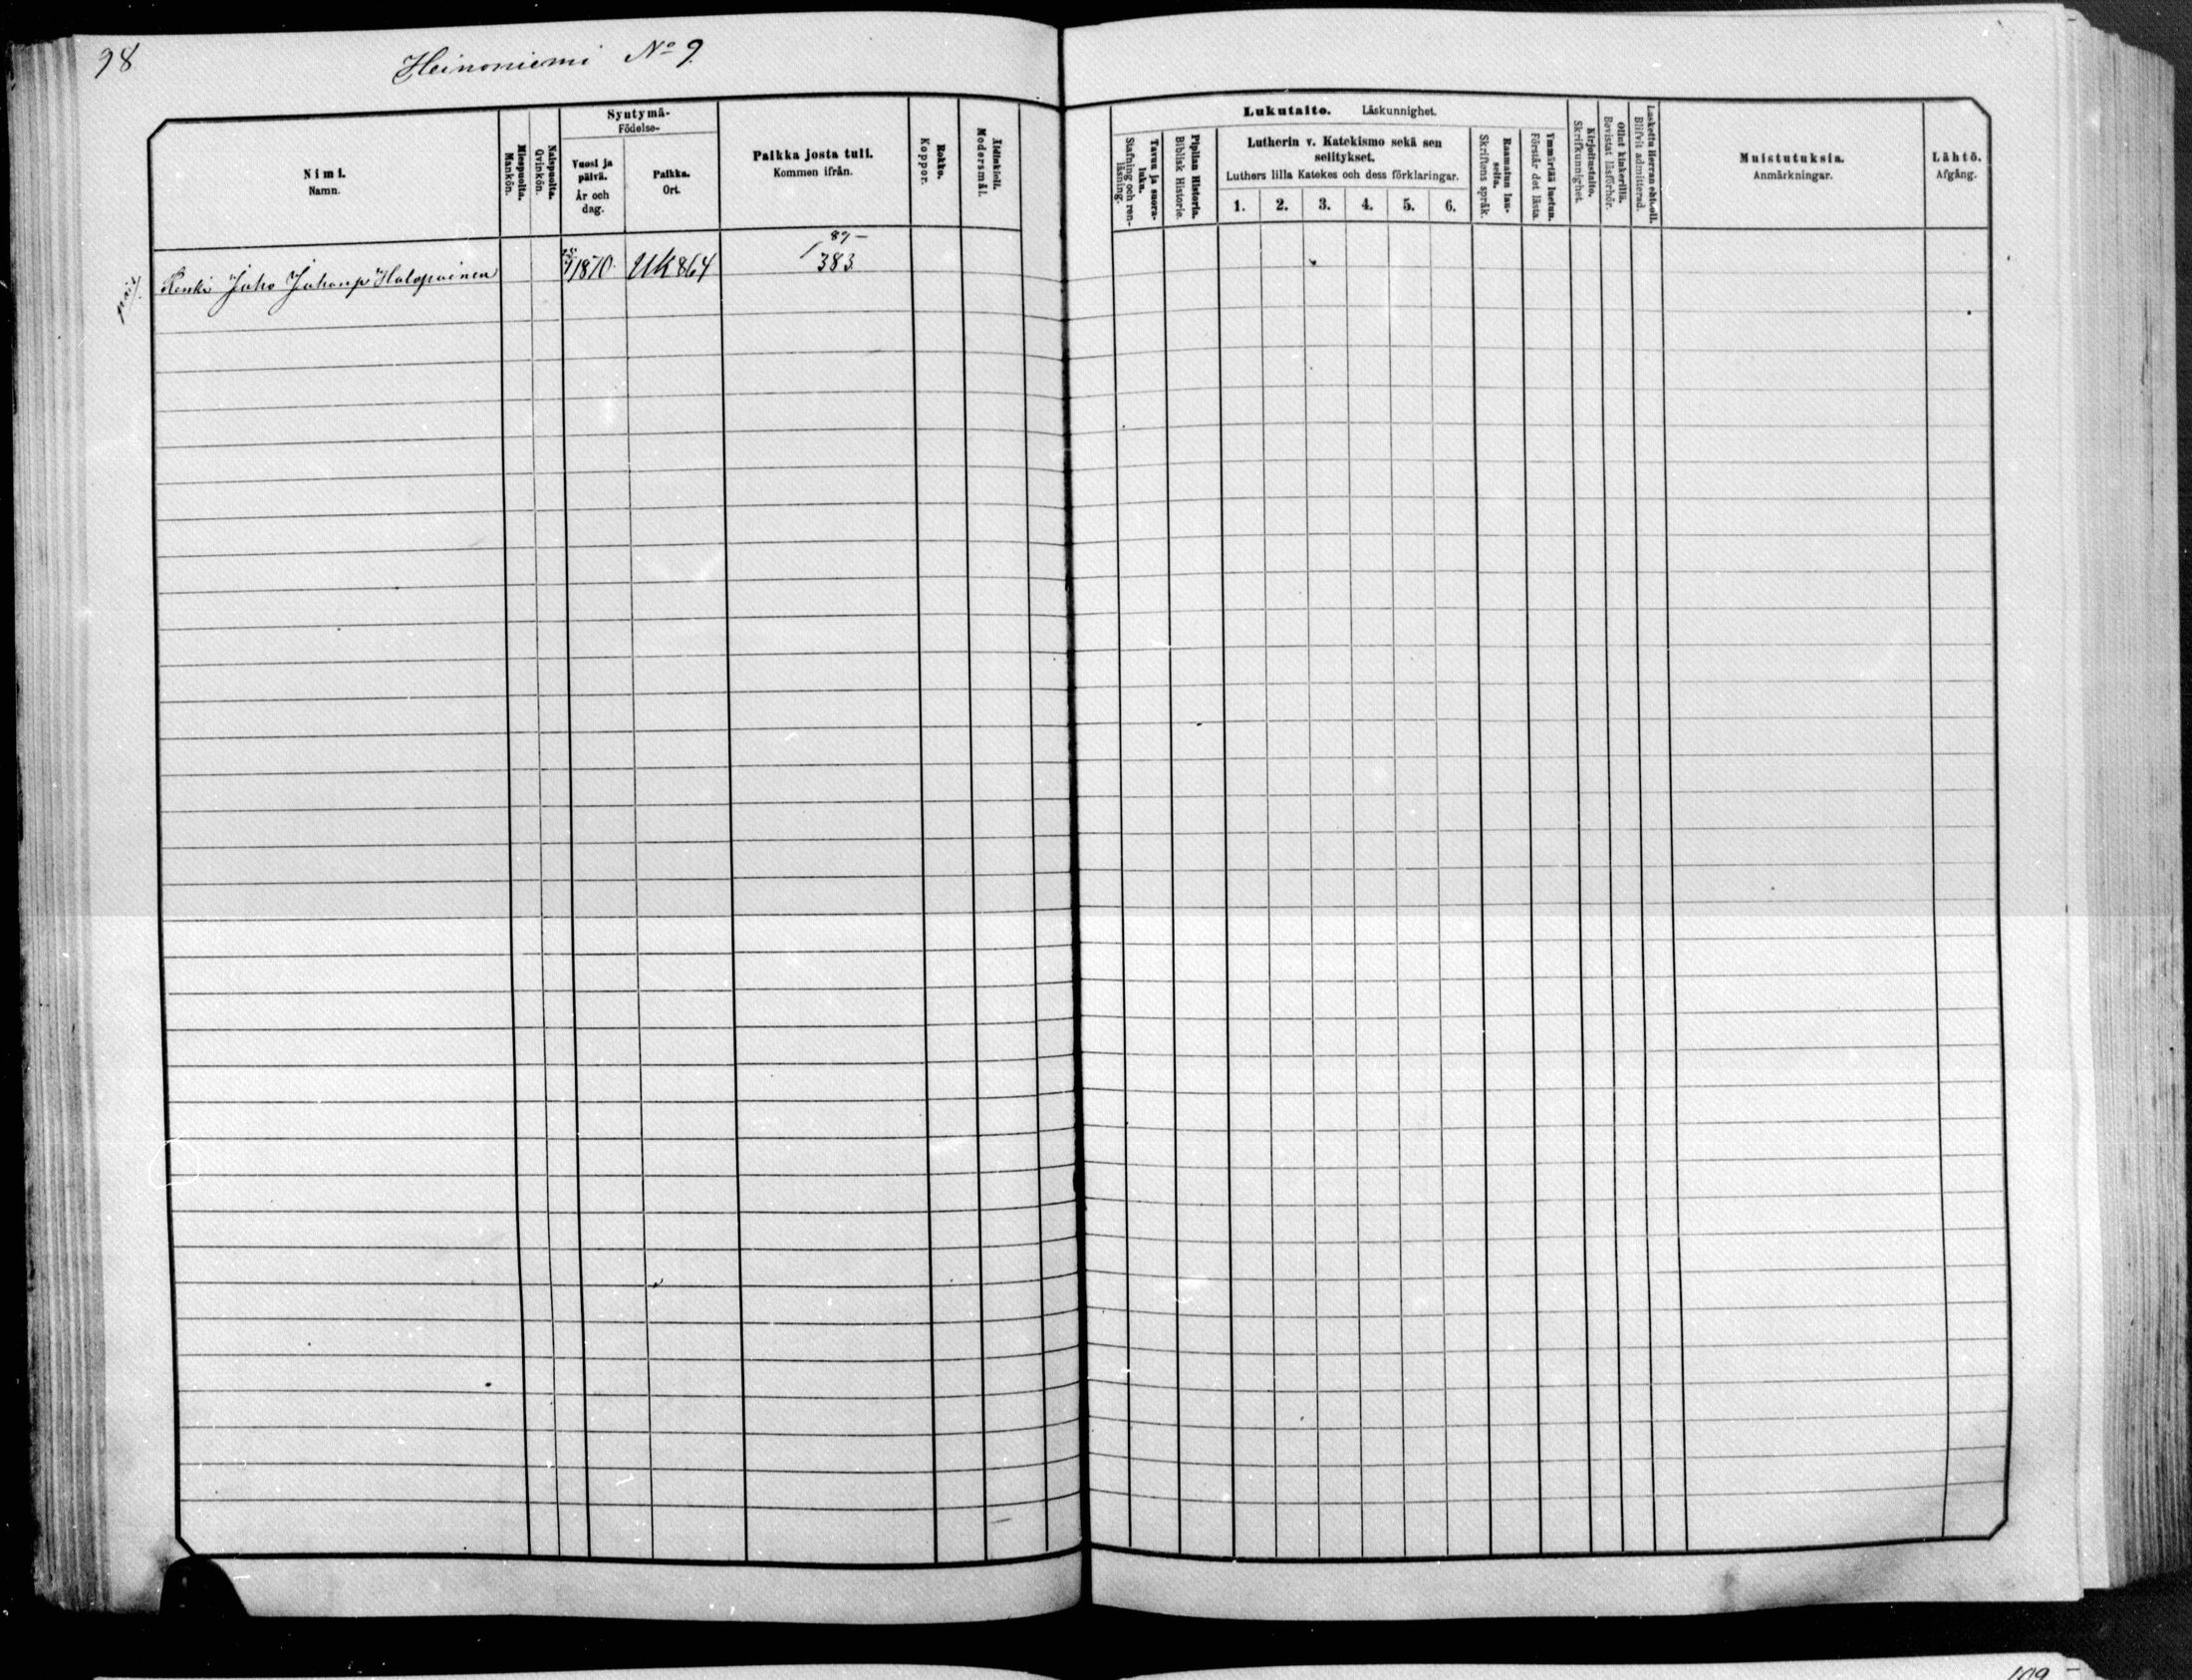 98
Heinoniemi No 9
Nimi.
Namn.
Miespuolta.
Mankön.
Naispuolta.
Qvinkön.
Syntymä-
Födelse-
Vuosi ja
päivä.
År och
dag.
Paikka.
Ort.
Paikka josta tuli.
Kommen ifrån.
Rokko.
Koppor.
Äidinkieli.
Modersmål.
Lukutaito. Läskunnighet.
Tavuu ja suora-
luku.
Stafning och ren-
läsning.
Piplian Historia.
Biblisk Historie.
Lutherin v. Katekismo sekä sen
selitykset.
Luthers lilla Katekes och dess förklaringar.
1. 2. 3. 4. 5. 6.
Raamatun lau-
seita.
Skriftens språk.
Ymmärtää luetun.
Förstår det lästa.
Kirjoitustaito.
Skrifkunnighet.
Ollut kinkerillä.
Bevistat läsförhör.
Laskettu Herran eht:oll.
Blifvit admitterad.
Muistutuksia.
Anmärkningar.
Lähtö.
Afgång.
89-
Renki Juho Juhanp Halopainen 1870 UK 864 383
109